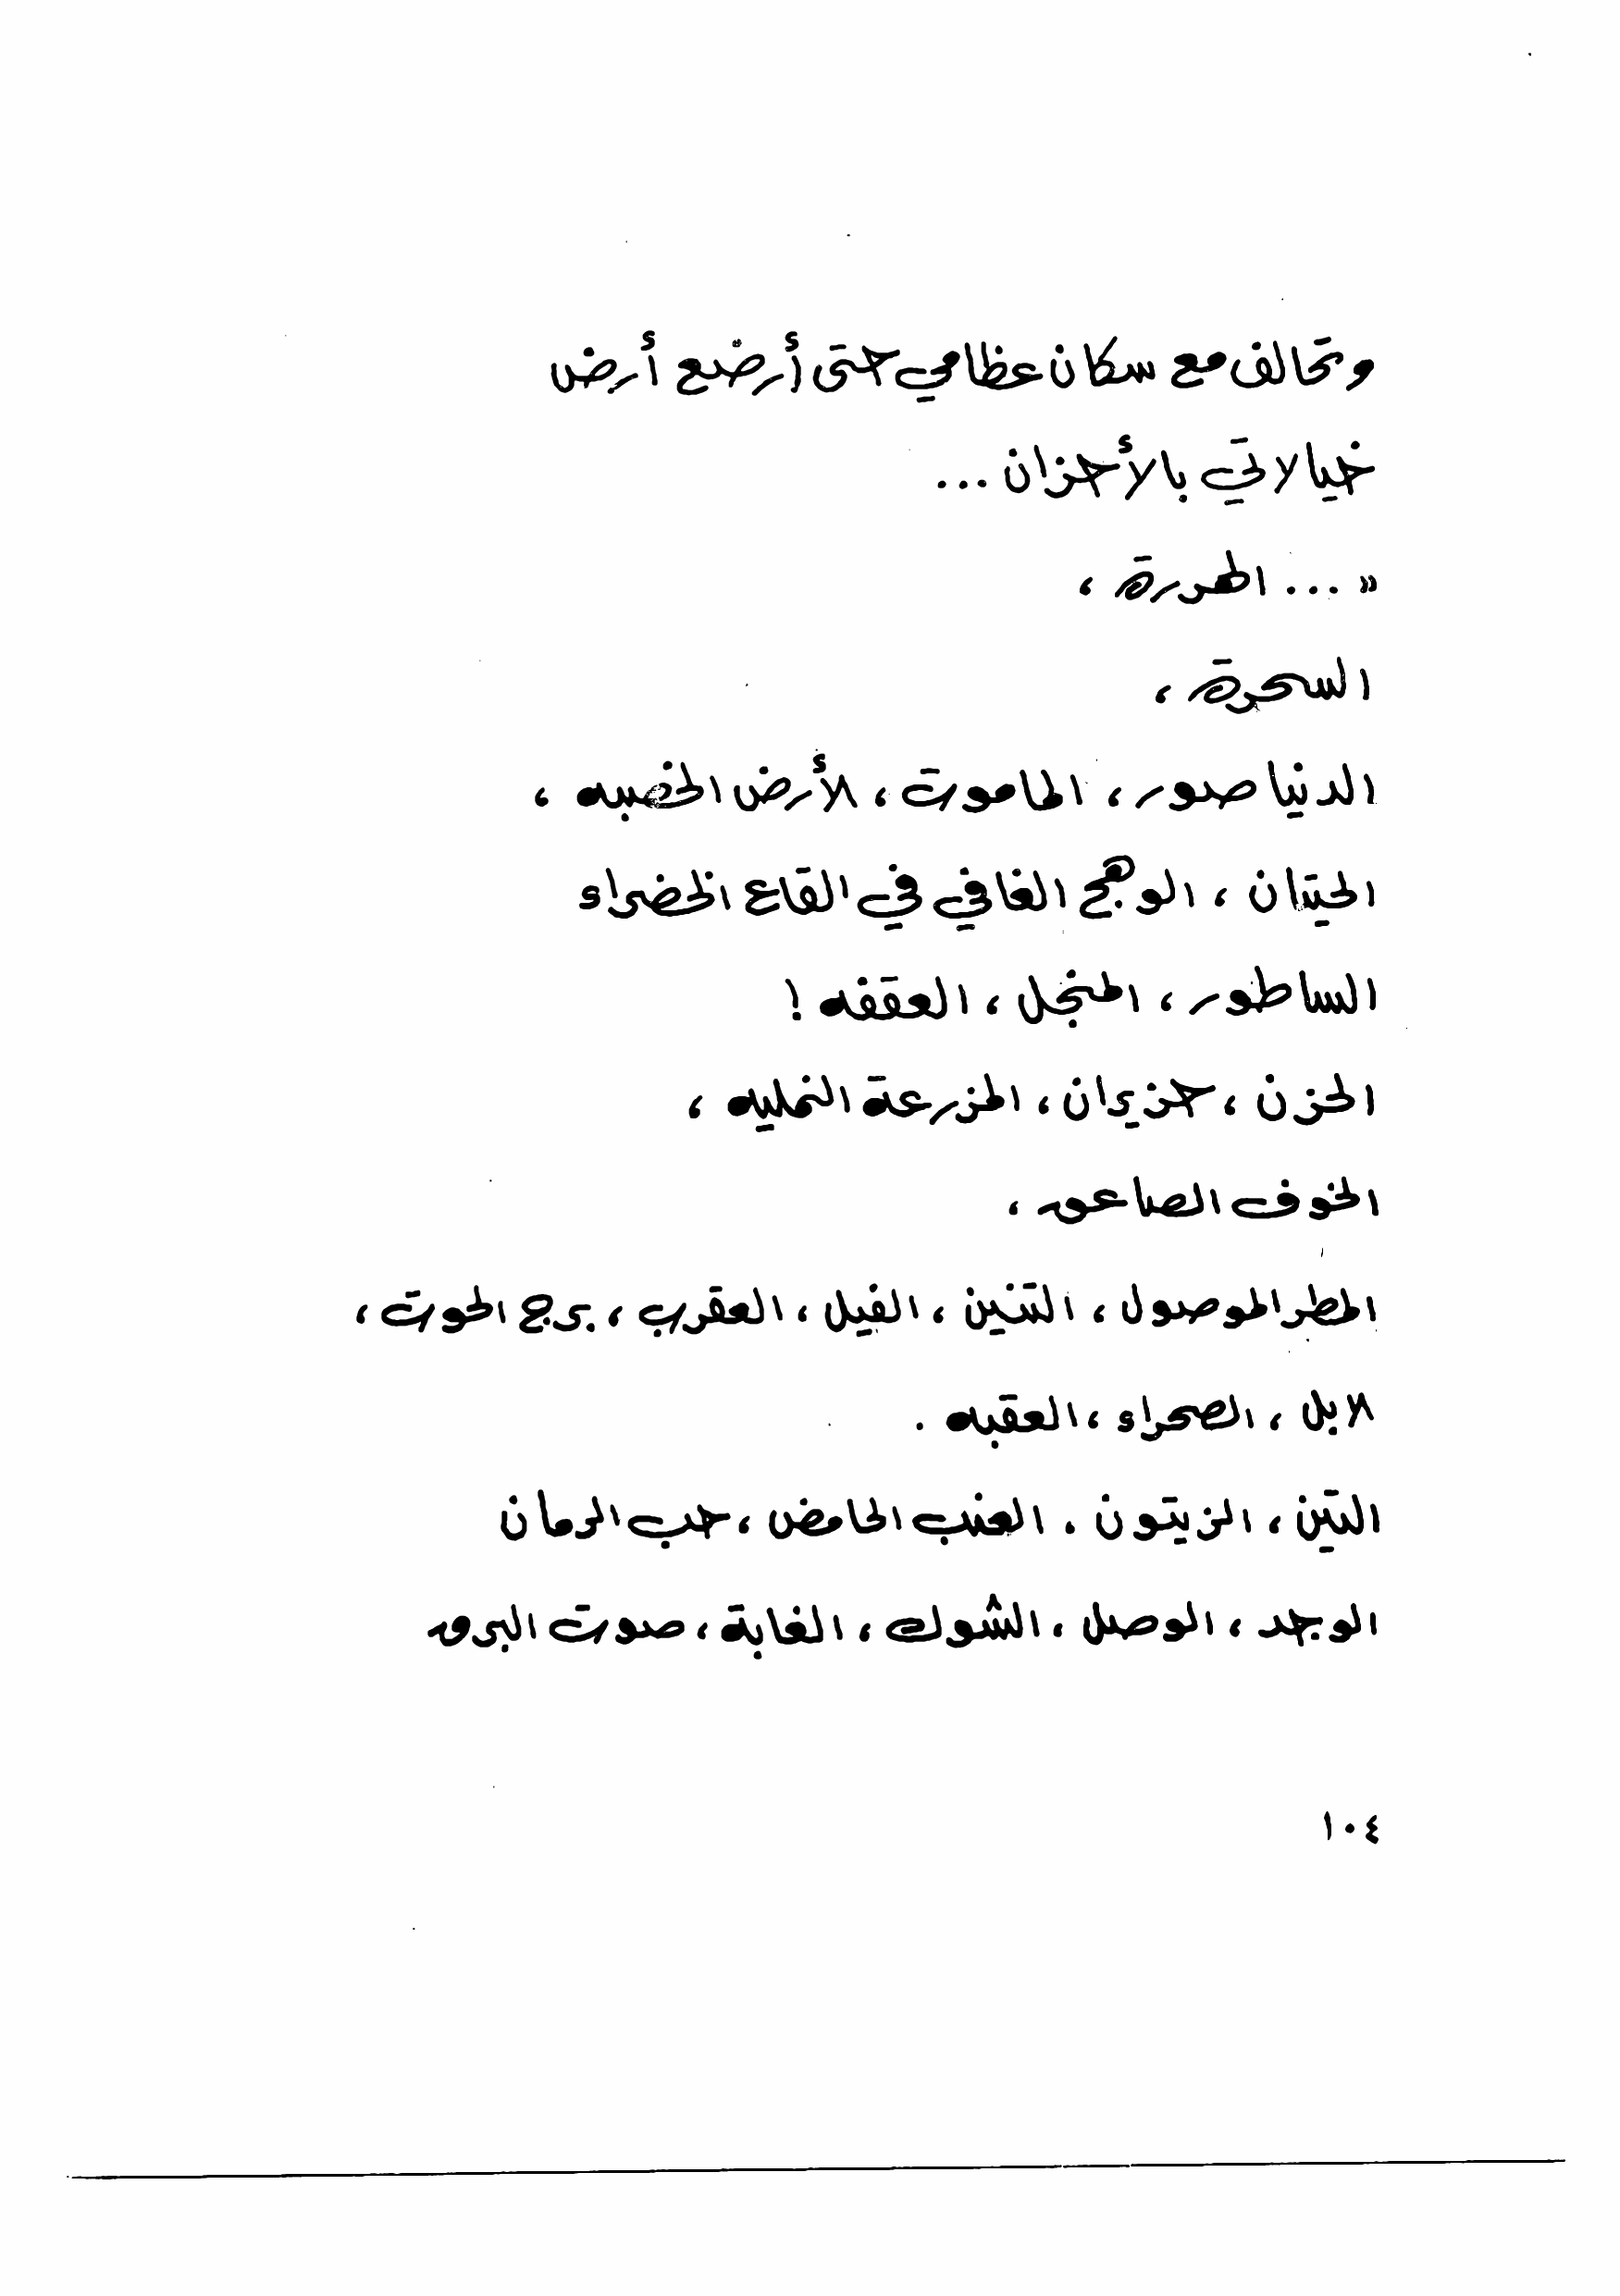 وتحالف مع سكان عظامي حتى أرضع أرض
خيالاتي بالأحزان ...
« ... المهدورة ،
السحرة ،
الدنيا صور ، الماموت ، الأرض الخصبه ،
الحيتان ، الوهج الغافي في القاع الخضراء
الساطور ، المنجل ، العقفه !
الحزن ، حزيران ، المزرعة النمليه ،
الخوف الصاعق ،
المطر الموصول ، التنين ، الفيل ، العقرب ، برج الحوت ،
الابل ، الصحراء ، العقبه .
التين ، الزيتون . العنب الحامض ، حب الرمان
الوجد ، الوصل ، الشوك ، الغابة ، صوت البرق
١٠٤